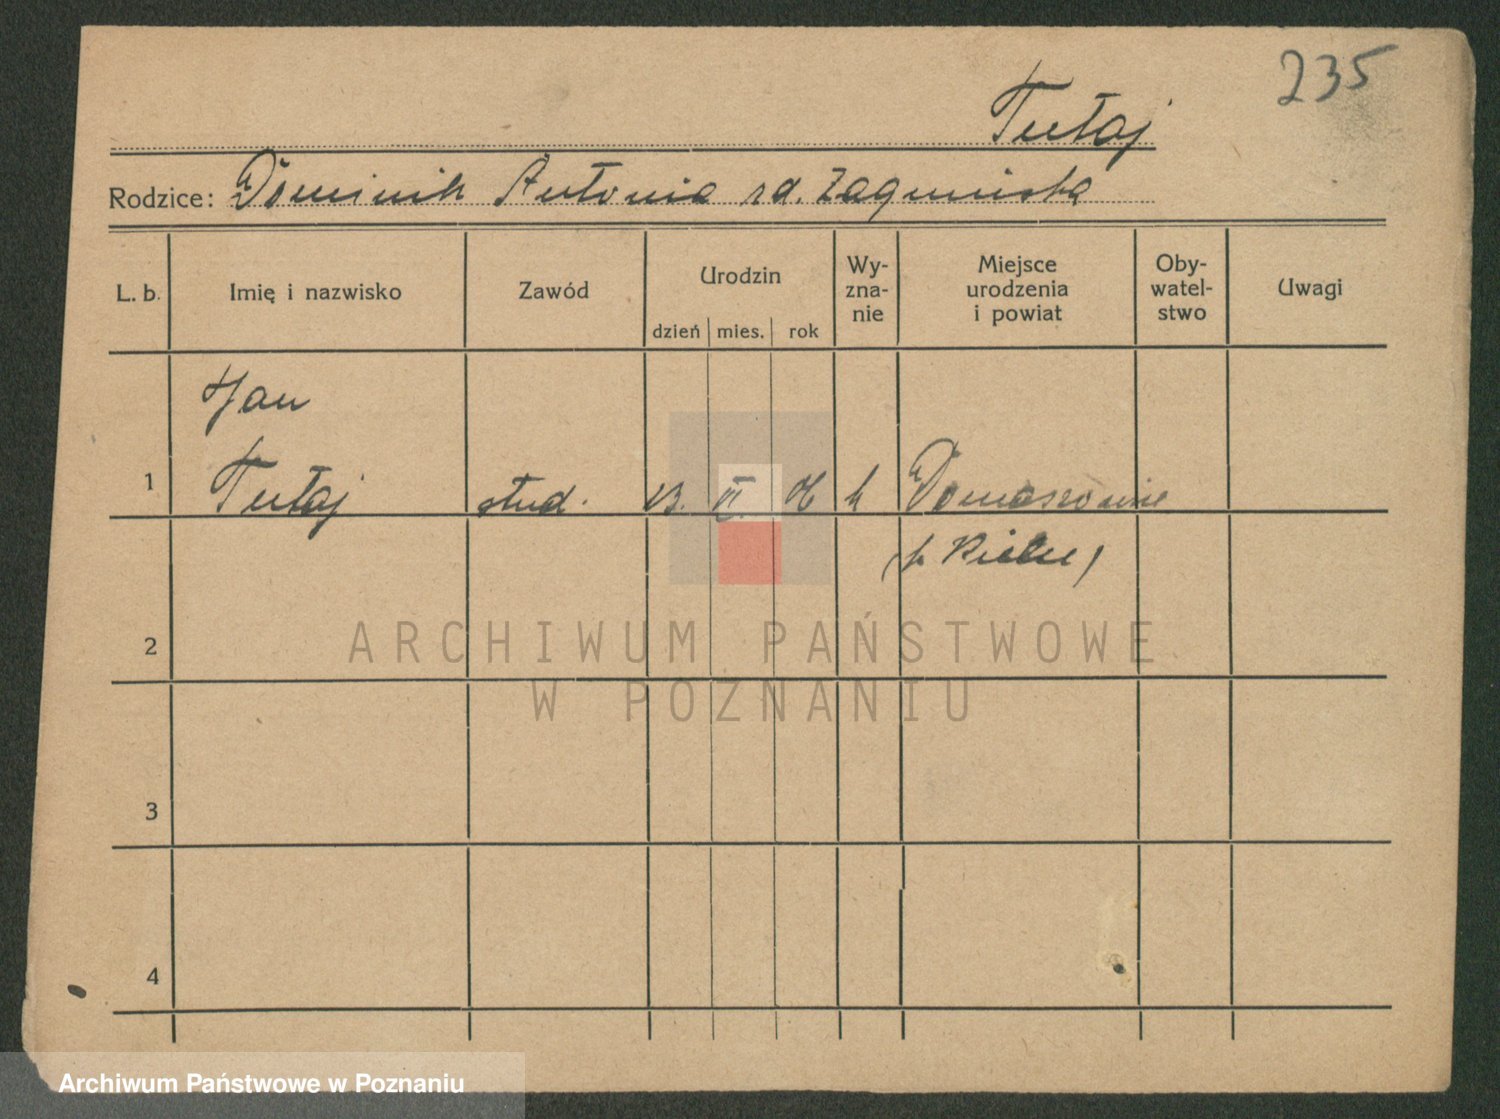 235
Tułaj
Rodzice: Dominik Antonia zd. Zagmińska
L. b. Imię i nazwisko Zawód Urodzin dzień mies. rok Wy-zna-nie Miejsce urodzenia i powiat Oby-watel-stwo Uwagi
Jan
1 Tułaj stud. 13. II. k Domaszowie
(p. Kielce)
2
ARCHIWUM PAŃSTWOWE
W POZNANIU
3
4
Archiwum Państwowe w Poznaniu